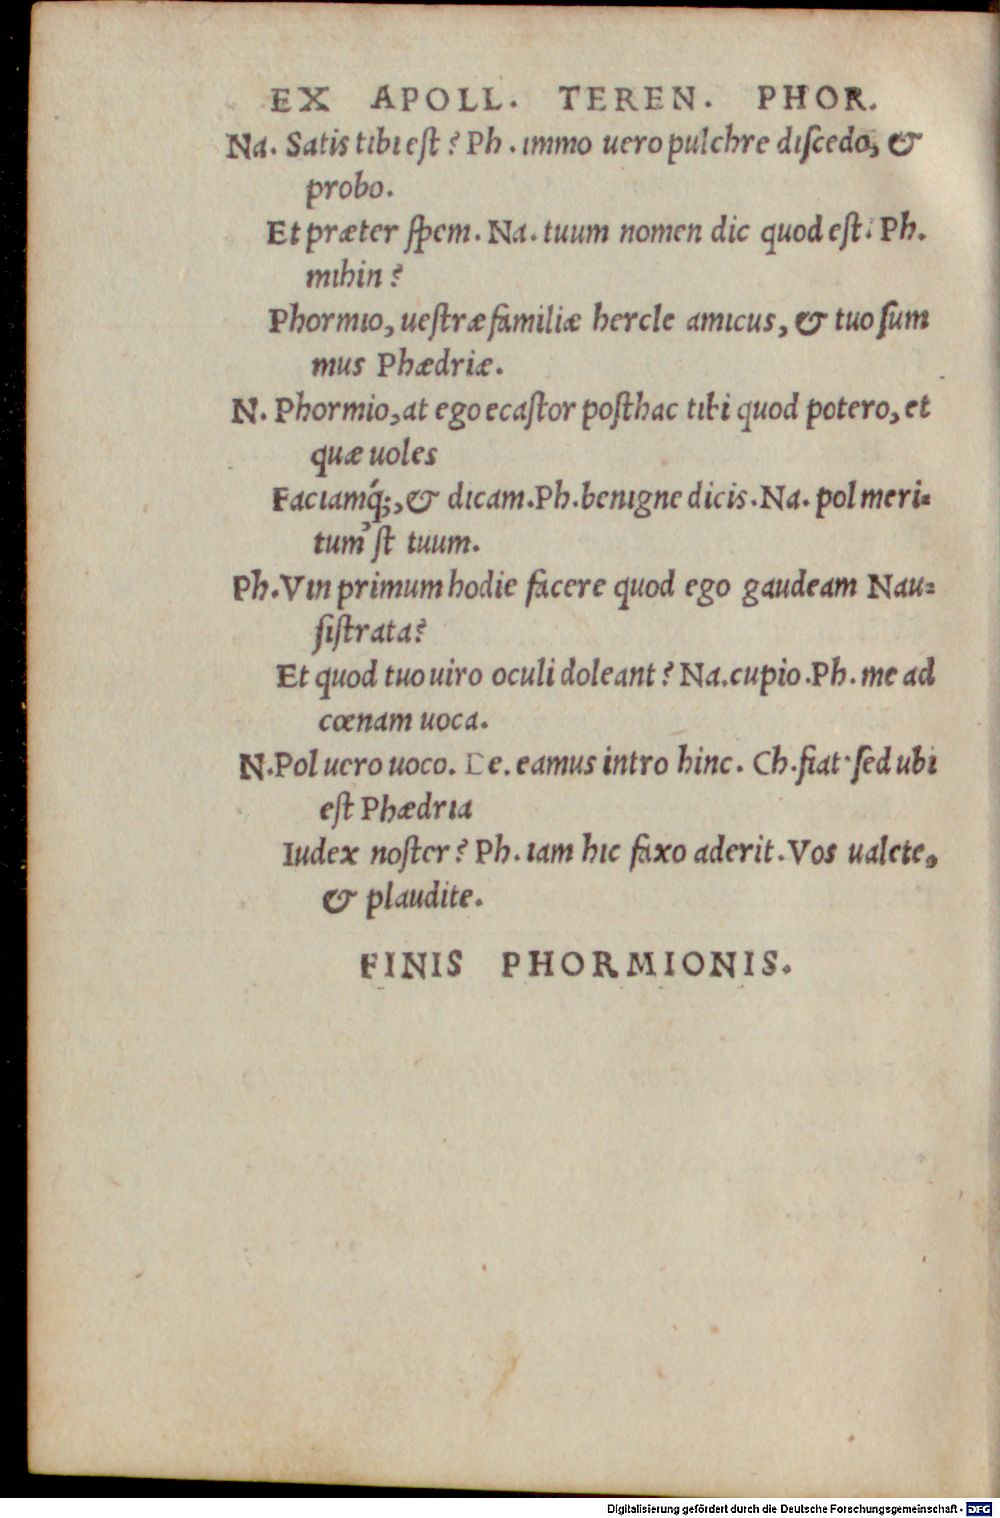 EX APOLL. TEREN. PHOR.
Na. Satis tibi eſt? Ph. immo uero pulchre diſcedo, &
probo.
Et præter ſpem. Na. tuum nomen dic quod eſt. Ph.
mihin?
Phormio, ueſtræ familiæ hercle amicus, & tuo ſum
mus Phædriæ.
N. Phormio, at ego ecaſtor poſthac tibi quod potero, et
quæ uoles
Faciamq́;, & dicam. Ph. benigne dicis. Na. pol meri-
tum'ſt tuum.
Ph. Vin primum hodie facere quod ego gaudeam Nau-
ſiſtrata?
Et quod tuo uiro oculi doleant? Na. cupio. Ph. me ad
cœnam uoca.
N. Pol uero uoco. De. eamus intro hinc. Ch. fiat. ſed ubi
eſt Phædria
Iudex noſter? Ph. iam hic faxo aderit. Vos ualete,
& plaudite.
FINIS PHORMIONIS.
Digitalisierung gefördert durch die Deutsche Forschungsgemeinschaft - DFG